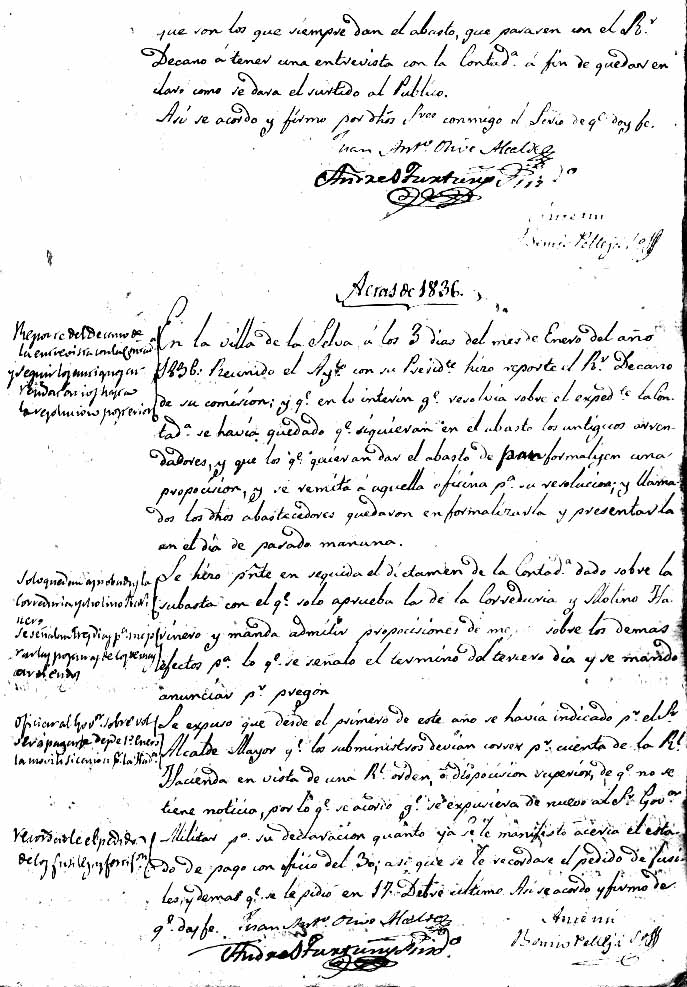 que son los que siempre dan el abasto, que pasasen con el Rr
Decano á tener una entrevista con la Contada á fin de quedar en
claro como se dara el surtido al Publico.
Asi se acordo y firmo por dhos Sres conmigo el Srio de qe doy fe.
Juan Anto Olive Alcalde
Andres Furtuny Sindo
Ante mi
Actas de 1836.
Reporte del Decano de
la entrevista con la Contada
y seguir los antiguos ar-
rendatarios hasta
la resolucion posterior
En la villa de la Selva á los 3 dias del mes de Enero del año
1836: Reunido el Aytо con su Presidte hizo reporte el Rr Decano
de su comision; y qe en lo interin qe resolvia sobre el expedte la Con-
tada se havia quedado qe siguieran en el abasto los antiguos arren-
dadores, y que los qe quieran dar el abasto de pan formalizen una
proposicion, y se remita á aquella oficina pa su resolucion; y llama-
dos los dhos abastecedores quedaron en formalizarla y presentarla
en el dia de pasado mañana.
Solo quedan aprobados la
Correduria y molino Hari-
nero
Se señalan tres dias pa mejo-
rar las posturas de los demas
arriendos
Se hizo pnte en seguida el dictamen de la Contada dado sobre la
subasta con el qe solo aprueba la de la Correduria y Molino Ha-
rinero y manda admitir proposiciones de me sobre los demas
efectos pa lo qe se señalo el termino del tercero dia y se mandó
anunciar pr pregon
Oficiar al Govor sobre
pagarse desde 1o Enero
la movilisacion
Se expuso que desde el primero de este año se havia indicado pr el Sr
Alcalde Mayor qe los subministros devian correr pr cuenta de la Rl
Hacienda en vista de una Rl orden, ó disposicion superior, de qe no se
tiene noticia, por lo qe se acordo qe se expusiera de nuevo al Sr Govor
Recordarle el pedido
de los fusiles y
Militar pa su declaracion quanto ya se le manifesto acerca el esta-
do de pago con oficio del 30; asi que se le recordase el pedido de fusi-
les, y demas qe se le pidio en 17 Debre ultimo. Asi se acordo y firmo de
qe doy fe. Juan Anto Olive Alcalde
Andres Furtuny Sindo
Ante mi